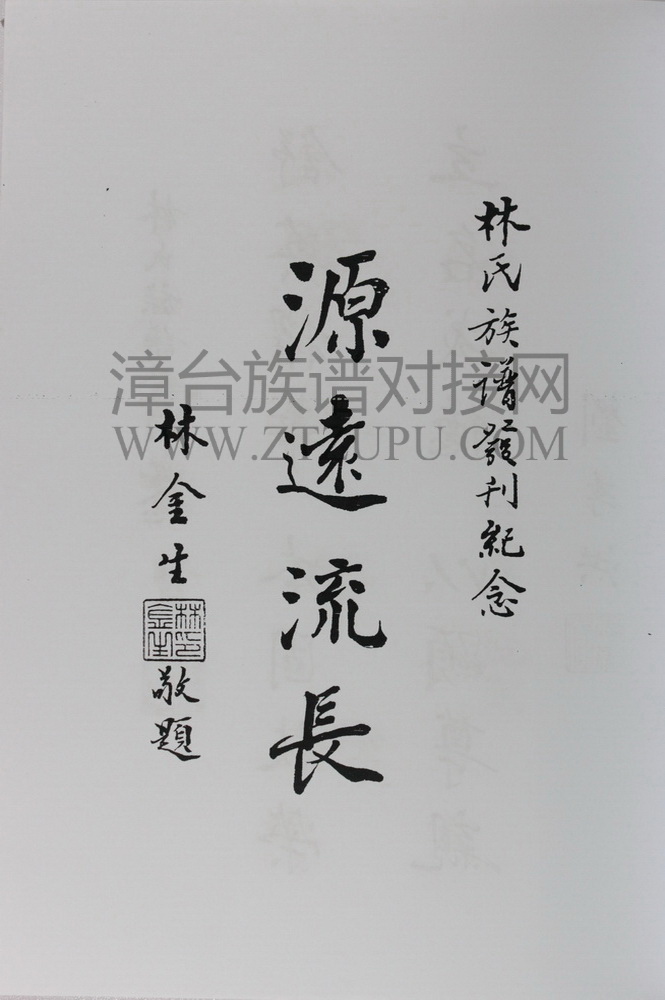 林氏族譜發刊紀念
源遠流長
林金生
林金生印
敬題
漳台族谱对接网
WWW.ZTZUPU.COM